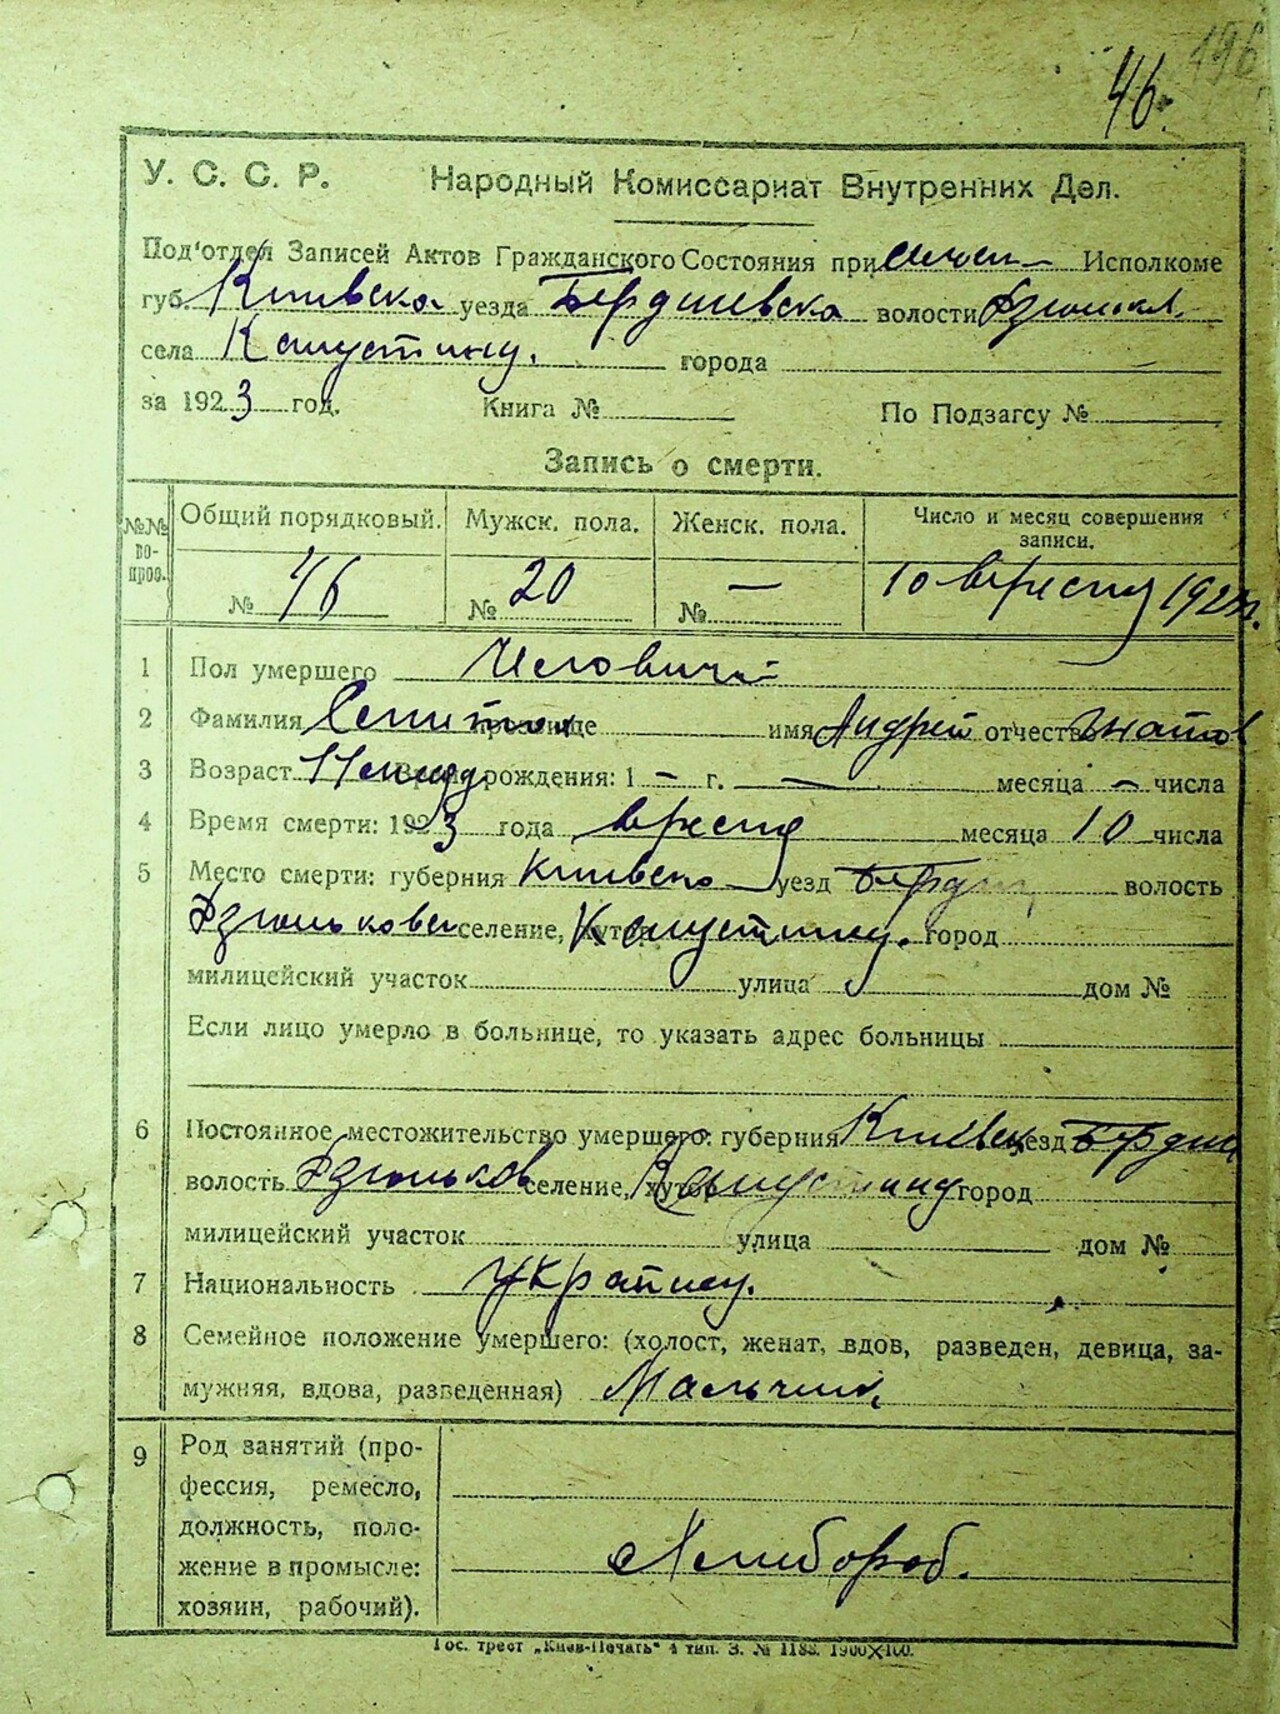 196
46.
У. С. С. Р. Народный Комиссариат Внутренних Дел.
Под'отдел Записей Актов Гражданского Состояния при Исполкоме
губ. Київска уезда Бердичевска волости Дзюньк.
села Капустинц. города
за 1923 год. Книга № По Подзагсу №
Запись о смерти.
№№ во-проо. Общий порядковый. Мужск. пола. Женск. пола. Число и месяц совершения записи.
№ 46 № 20 № — 10 вересня 192
1 Пол умершего Чловичий
2 Фамилия прозвище имя Андрей отчество Гнатов
3 Возраст Время рождения: 1 — г. — месяца — числа
4 Время смерти: 1923 года вресня месяца 10 числа
5 Место смерти: губерния Київска уезд Бердич волость
Дзюньковск селение, хутор Капустинц. город
милицейский участок улица дом №
Если лицо умерло в больнице, то указать адрес больницы
6 Постоянное местожительство умершего: губерния Київск уезд Бердич
волость Дзюньков селение, хутор Капустинц город
милицейский участок улица дом №
7 Национальность Україньц.
8 Семейное положение умершего: (холост, женат, вдов, разведен, девица, за-
мужняя, вдова, разведенная) Мальчик
9 Род занятий (про-
фессия, ремесло,
должность, поло-
жение в промысле: Хлибороб.
хозяин, рабочий).
Гос. трест „Киев-Печать" 4 тип. З. № 1188. 1900X100.